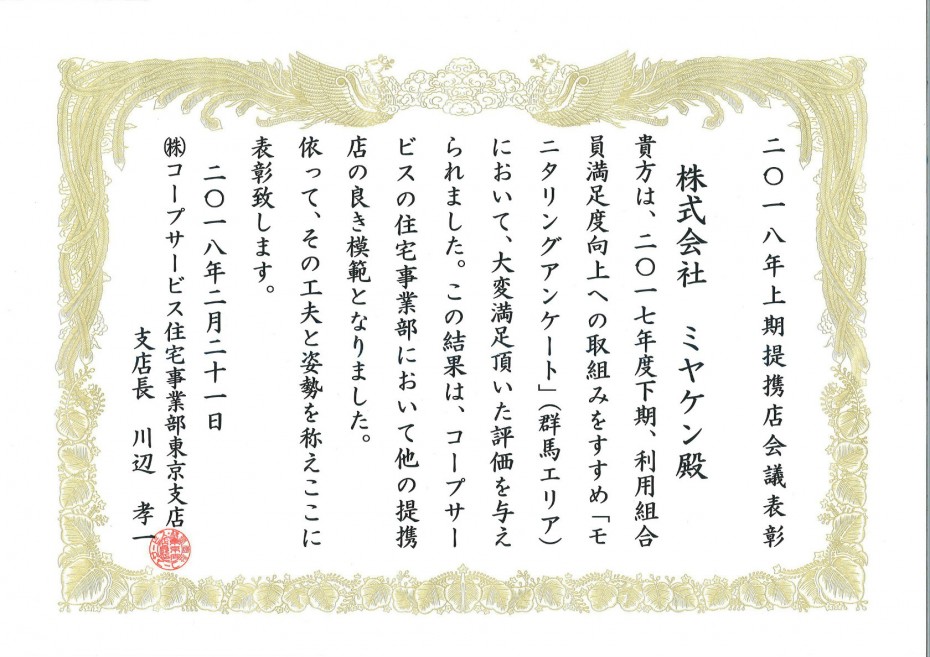 二〇一八年上期提携店会議表彰
株式会社 ミヤケン殿
貴方は、二〇一七年度下期、利用組合
員満足度向上への取組みをすすめ「モ
ニタリングアンケート」（群馬エリア）
において、大変満足頂いた評価を与え
られました。この結果は、コープサー
ビスの住宅事業部において他の提携
店の良き模範となりました。
依って、その工夫と姿勢を称えここに
表彰致します。
二〇一八年二月二十一日
㈱コープサービス住宅事業部東京支店
支店長 川辺 孝一